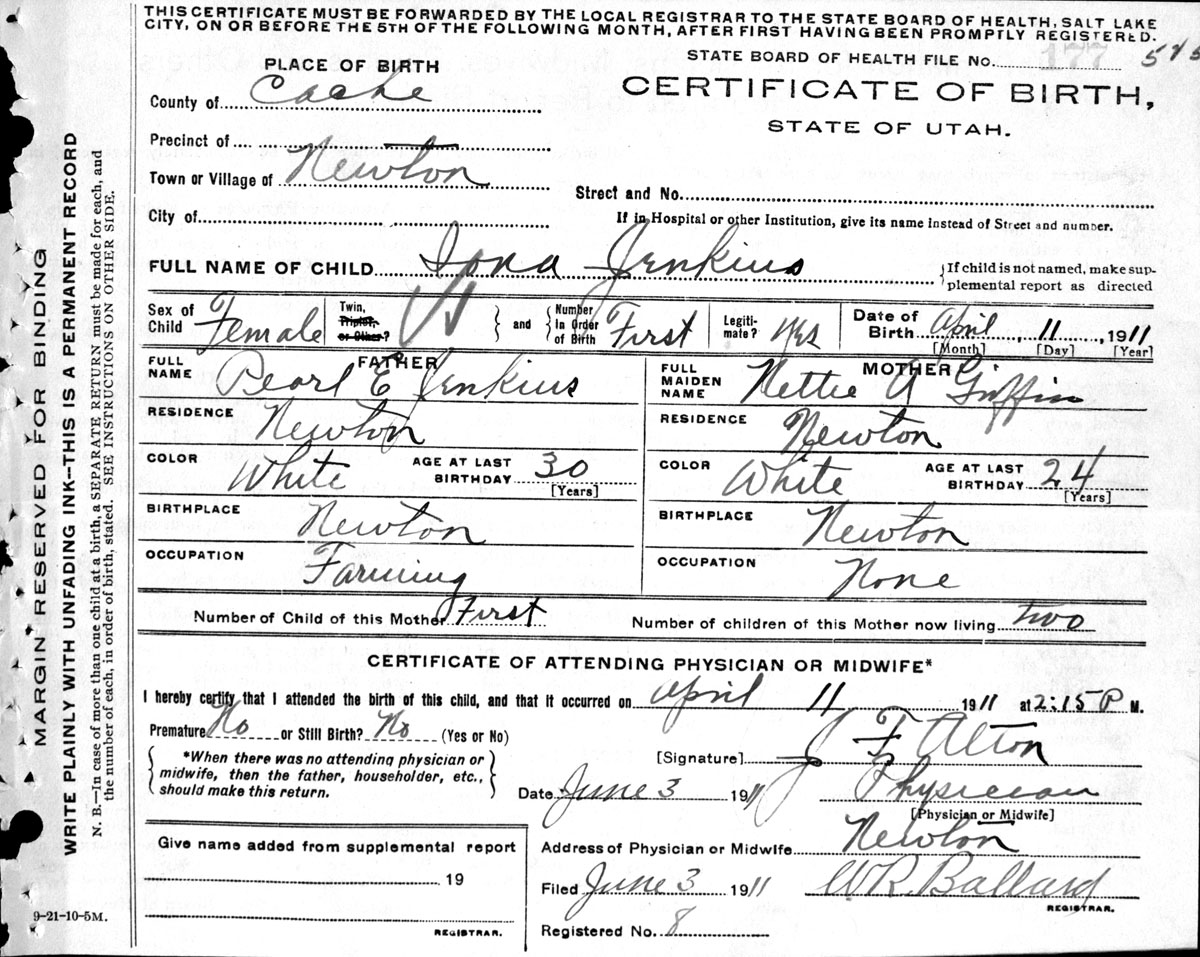 THIS CERTIFICATE MUST BE FORWARDED BY THE LOCAL REGISTRAR TO THE STATE BOARD OF HEALTH, SALT LAKE
CITY, ON OR BEFORE THE 5TH OF THE FOLLOWING MONTH, AFTER FIRST HAVING BEEN PROMPTLY REGISTERED.
STATE BOARD OF HEALTH FILE No. 177
PLACE OF BIRTH
CERTIFICATE OF BIRTH,
STATE OF UTAH.
County of Cache
Precinct of
Town or Village of Newton
Street and No.
City of
If in Hospital or other Institution, give its name instead of Street and number.
FULL NAME OF CHILD Iona Jenkins
{If child is not named, make sup-
plemental report as directed
Sex of Child Female
Twin, Triplet, or Other?
and
Number in Order of Birth First
Legiti-mate? Yes
Date of Birth April 11, 1911
[Month] [Day] [Year]
FATHER
FULL NAME Pearl E Jenkins
RESIDENCE Newton
COLOR White AGE AT LAST BIRTHDAY 30
[Years]
BIRTHPLACE Newton
OCCUPATION Farming
MOTHER
FULL MAIDEN NAME Nettie A Griffin
RESIDENCE Newton
COLOR White AGE AT LAST BIRTHDAY 24
[Years]
BIRTHPLACE Newton
OCCUPATION None
Number of Child of this Mother First Number of children of this Mother now living two
CERTIFICATE OF ATTENDING PHYSICIAN OR MIDWIFE*
I hereby certify that I attended the birth of this child, and that it occurred on April 11 1911 at 2:15 P M.
Premature No or Still Birth? No (Yes or No)
*When there was no attending physician or
midwife, then the father, householder, etc.,
should make this return.
[Signature] J F Alton
Date June 3 1911 Physician
[Physician or Midwife]
Address of Physician or Midwife Newton
Filed June 3 1911 W R. Ballard
REGISTRAR.
Registered No. 8
Give name added from supplemental report
19
REGISTRAR.
9-21-10-5M.
MARGIN RESERVED FOR BINDING
WRITE PLAINLY WITH UNFADING INK--THIS IS A PERMANENT RECORD
N. B.—In case of more than one child at a birth, a SEPARATE RETURN must be made for each, and
the number of each, in order of birth, stated. SEE INSTRUCTIONS ON OTHER SIDE.